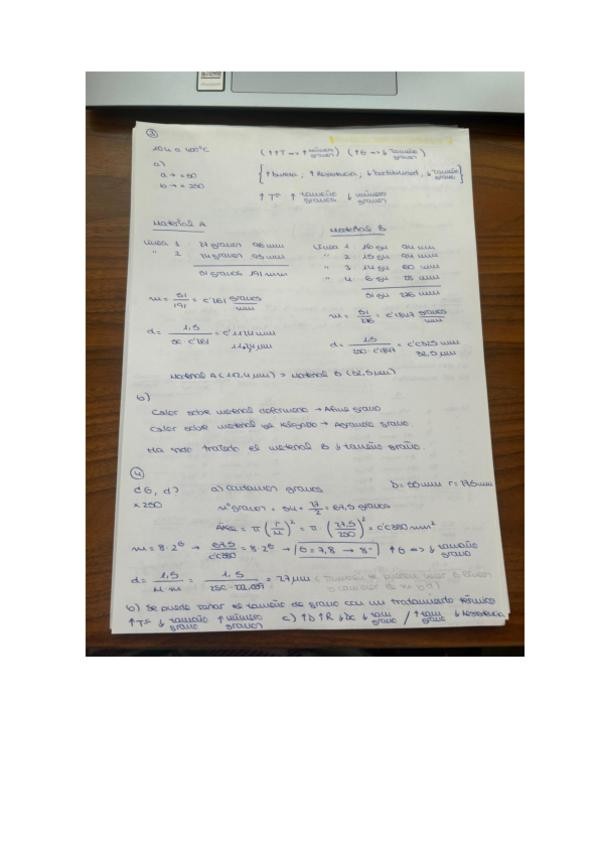 ③
10h a 400°C (↑↑T → ↑ número granos) (↑G → ↓ tamaño grano)
a)
a → × 50 {↑ Dureza, ↑ Resistencia, ↓ Ductilidad, ↓ Tamaño grano}
b → × 250
↑Tª ↑ tamaño granos ↓ número granos
Material A
Línea 1 : 27 granos 96 mm
" 2 24 granos 95 mm
51 granos 191 mm
m = 51/191 = 0'261 granos/mm
d = 1,5/50·0'261 = 0'1124 mm
112,4 μm
Material B
Línea 1 : 16 gu 94 mm
" 2 : 15 gu 94 mm
" 3 : 14 gu 60 mm
" 4 : 6 gu 28 mm
51 gu 276 mm
m = 51/276 = 0'1847 granos/mm
d = 1,5/250·0'1847 = 0'0325 mm
32,5 μm
Material A (112,4 μm) > Material B (32,5 μm)
b)
Calor sobre material deformado → Afina grano
Calor sobre material → Agranda grano
Ha sido tratado el material B ↓ tamaño grano.
④
¿G, d? a) Contamos granos D = 55 mm r = 27,5 mm
× 250 nº granos = 54 + 27/2 = 67,5 granos
Área = π (r/M)² = π · (27,5/250)² = 0'0380 mm²
m = 8·2ᴳ → 67,5/0'0380 = 8·2ᴳ → G = 7,8 → 8 ↑G → ↓ tamaño grano
d = 1,5/M·m = 1,5/250·222,039 = 27 μm
b) Se puede variar el tamaño de grano con un tratamiento térmico
↑Tª ↓ tamaño grano ↑ número granos c) ↑D ↑R ↓Dc ↓ tam grano / ↑ tam grano ↓ Resistencia